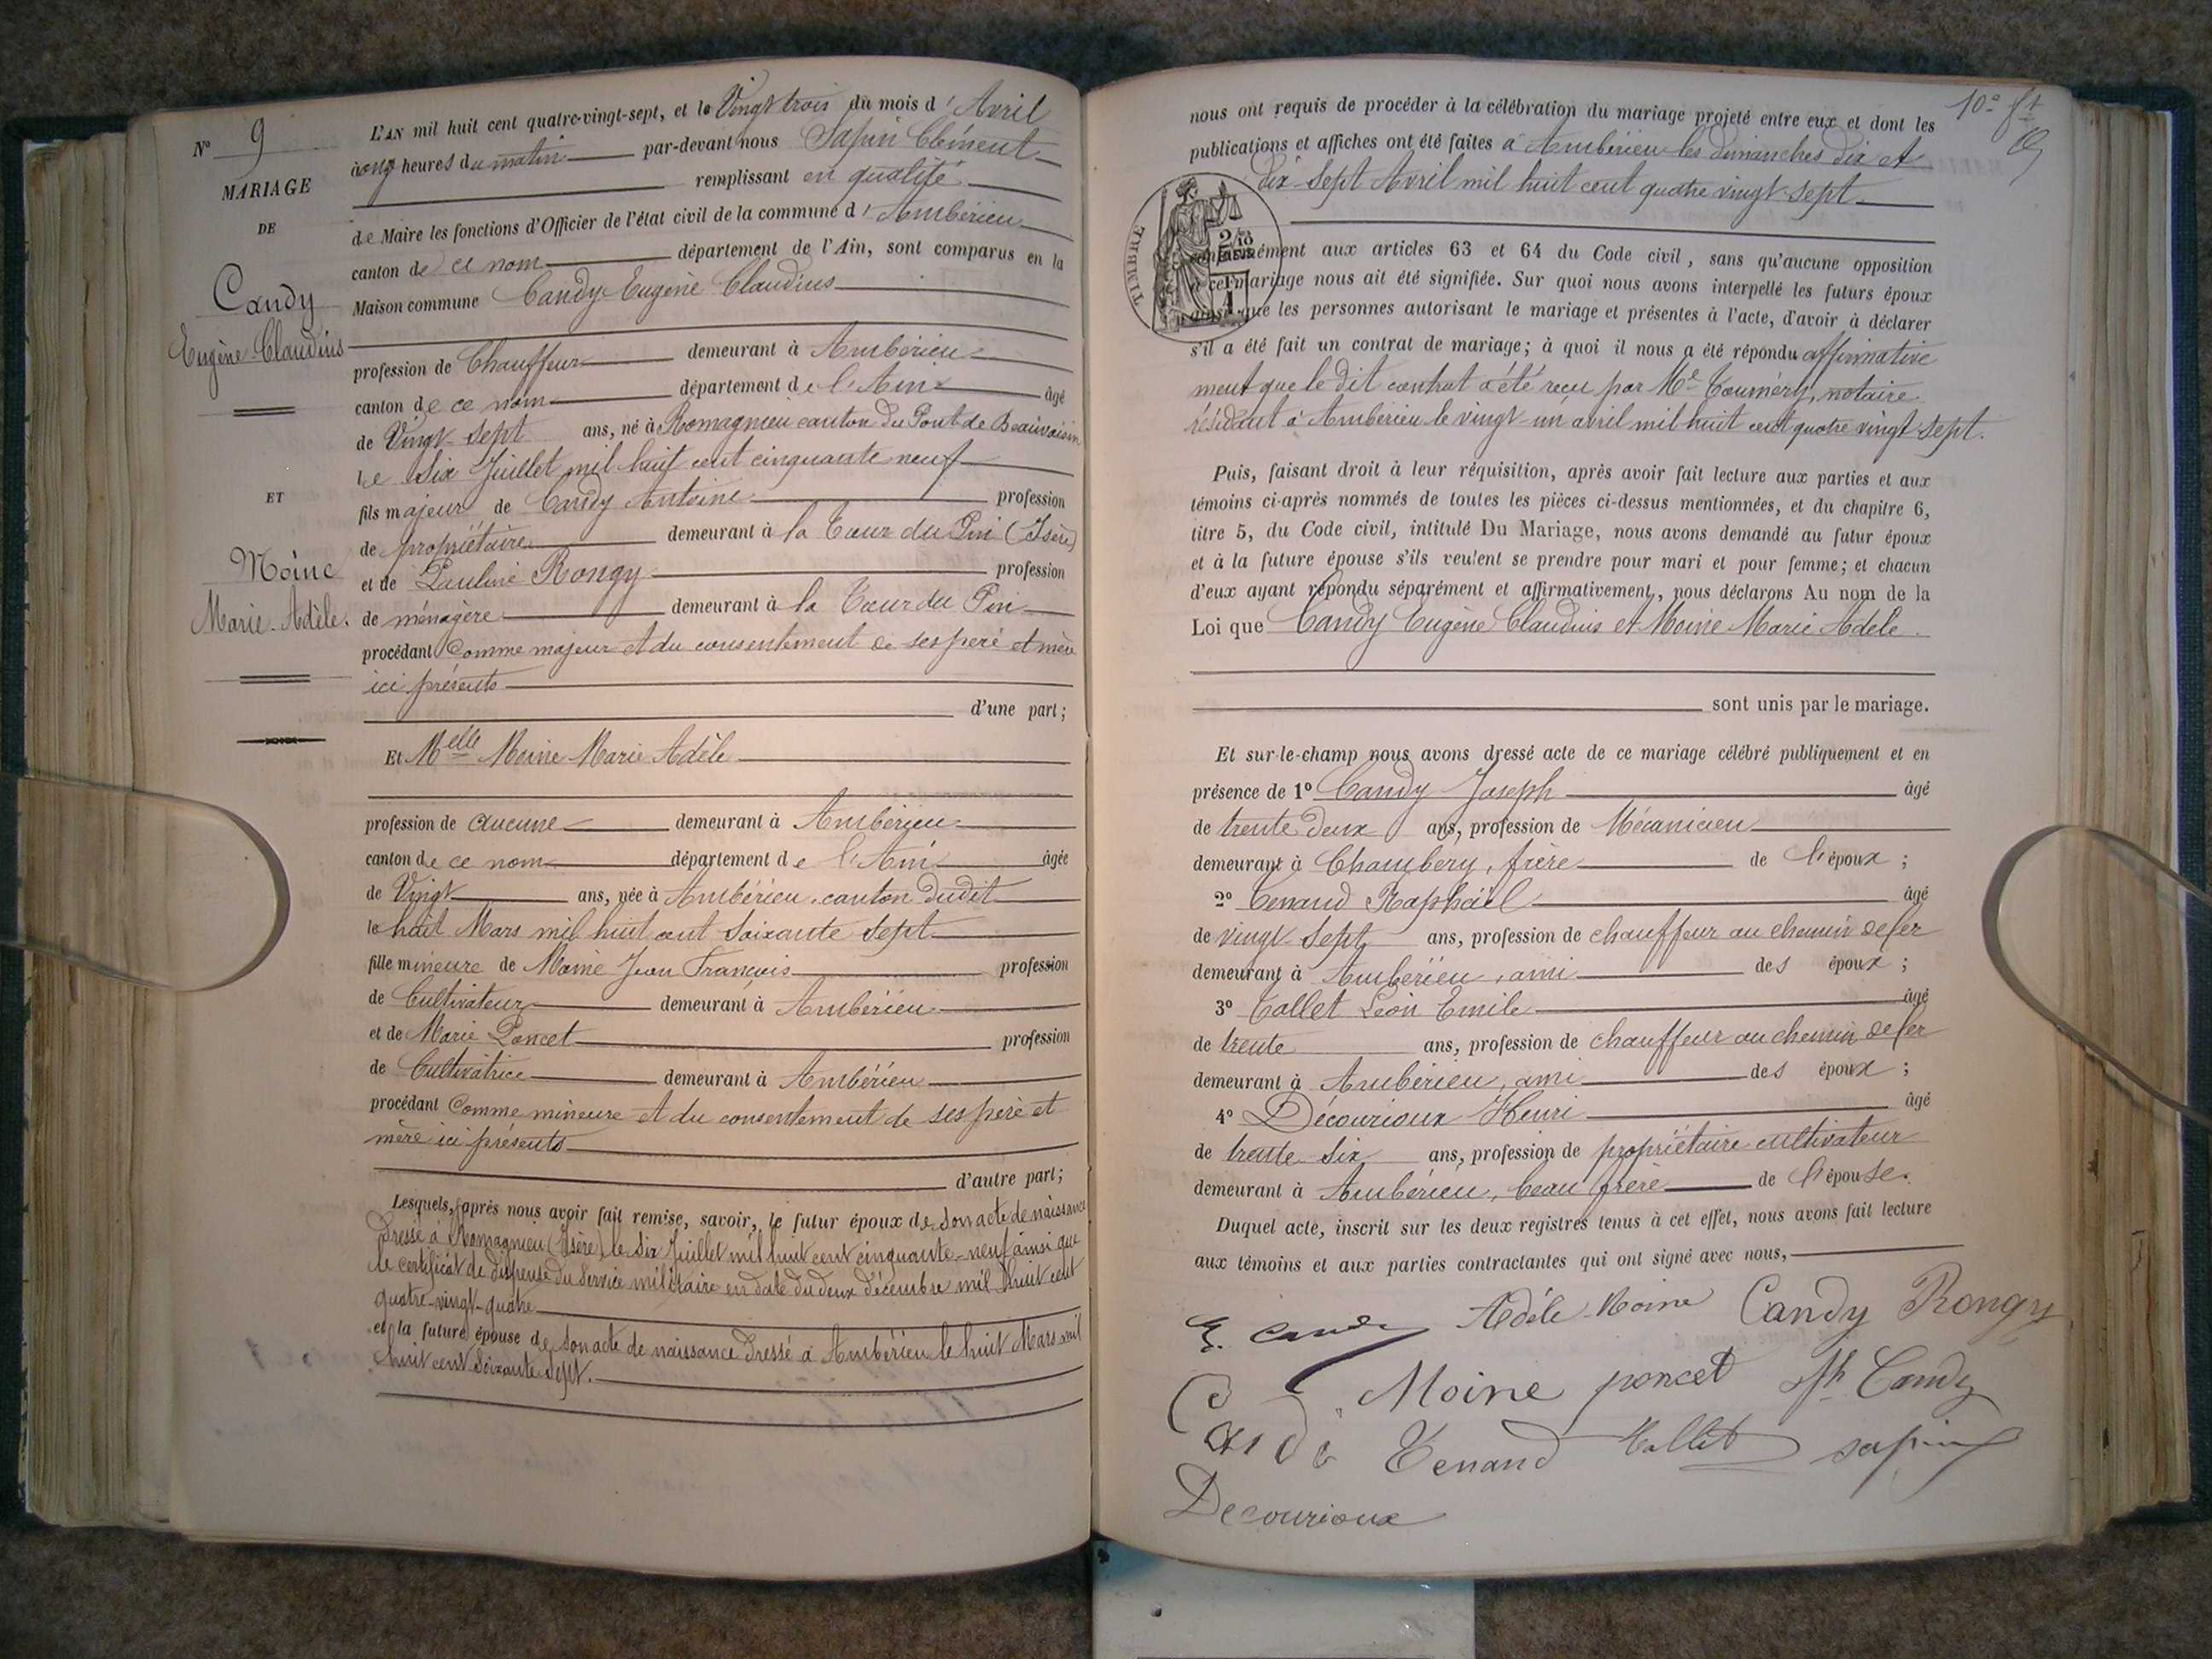 N° 9
MARIAGE
DE
Candy
Eugène Claudius
ET
Moine
Marie Adèle.
L'AN mil huit cent quatre-vingt-sept, et le Vingt trois du mois d'Avril
à onz heures du matin par-devant nous Sapin Clément
remplissant en qualité
de Maire les fonctions d'Officier de l'état civil de la commune d'Ambérieu
canton de ce nom département de l'Ain, sont comparus en la
Maison commune Candy Eugène Claudius
profession de Chauffeur demeurant à Ambérieu
canton de ce nom département de l'Ain âgé
de Vingt-Sept ans, né à Romagnieu canton du Pont de Beauvoisin
le Six Juillet mil huit cent cinquante neuf
fils majeur de Candy Antoine profession
de propriétaire demeurant à la Tour du Pin (Isère)
et de Pauline Rongy profession
de ménagère demeurant à la Tour du Pin
procédant Comme majeur et du consentement de ses père et mère
ici présents
d'une part;
Et Melle Moine Marie Adèle
profession de aucune demeurant à Ambérieu
canton de ce nom département de l'Ain âgée
de Vingt ans, née à Ambérieu, canton dudit
le huit Mars mil huit cent Soixante Sept
fille mineure de Moine Jean François profession
de Cultivateur demeurant à Ambérieu
et de Marie Poncet profession
de Cultivatrice demeurant à Ambérieu
procédant Comme mineure et du consentement de ses père et
mère ici présents
d'autre part;
Lesquels, après nous avoir fait remise, savoir, le futur époux de Son acte de naissance
Dressé à Romagnieu (Isère) le Six Juillet mil huit cent cinquante-neuf ainsi que
le certificat de dispense du Service militaire en date du deux Décembre mil huit cent
quatre-vingt-quatre
et la future épouse de Son acte de naissance Dressé à Ambérieu le huit Mars mil
huit cent Soixante Sept.
10e ft
nous ont requis de procéder à la célébration du mariage projeté entre eux et dont les
publications et affiches ont été faites à Ambérieu les dimanches dix et
dix-Sept Avril mil huit cent quatre vingt-sept
TIMBRE
conformément aux articles 63 et 64 du Code civil, sans qu'aucune opposition
à ce mariage nous ait été signifiée. Sur quoi nous avons interpellé les futurs époux
ainsi que les personnes autorisant le mariage et présentes à l'acte, d'avoir à déclarer
s'il a été fait un contrat de mariage; à quoi il nous a été répondu affirmative
ment que le dit contrat a été reçu par Me Tournéry, notaire
résidant à Ambérieu le vingt-un avril mil huit cent quatre vingt sept.
Puis, faisant droit à leur réquisition, après avoir fait lecture aux parties et aux
témoins ci-après nommés de toutes les pièces ci-dessus mentionnées, et du chapitre 6,
titre 5, du Code civil, intitulé Du Mariage, nous avons demandé au futur époux
et à la future épouse s'ils veulent se prendre pour mari et pour femme; et chacun
d'eux ayant répondu séparément et affirmativement, nous déclarons Au nom de la
Loi que Candy Eugène Claudius et Moine Marie Adèle
sont unis par le mariage.
Et sur-le-champ nous avons dressé acte de ce mariage célébré publiquement et en
présence de 1° Candy Joseph âgé
de trente deux ans, profession de Mécanicien
demeurant à Chambéry, frère de l'époux;
2° Tenand Raphaël âgé
de vingt Sept ans, profession de chauffeur au chemin de fer
demeurant à Ambérieu, ami des époux;
3° Tallet Léon Emile âgé
de trente ans, profession de chauffeur au chemin de fer
demeurant à Ambérieu, ami des époux;
4° Décourioux Henri âgé
de trente Six ans, profession de propriétaire cultivateur
demeurant à Ambérieu, beau frère de l'épouse.
Duquel acte, inscrit sur les deux registres tenus à cet effet, nous avons fait lecture
aux témoins et aux parties contractantes qui ont signé avec nous,
E. Candy Adèle Moine Candy Rongy
Moine poncet Jh Candy
Tenand Tallet Sapin
Decourioux